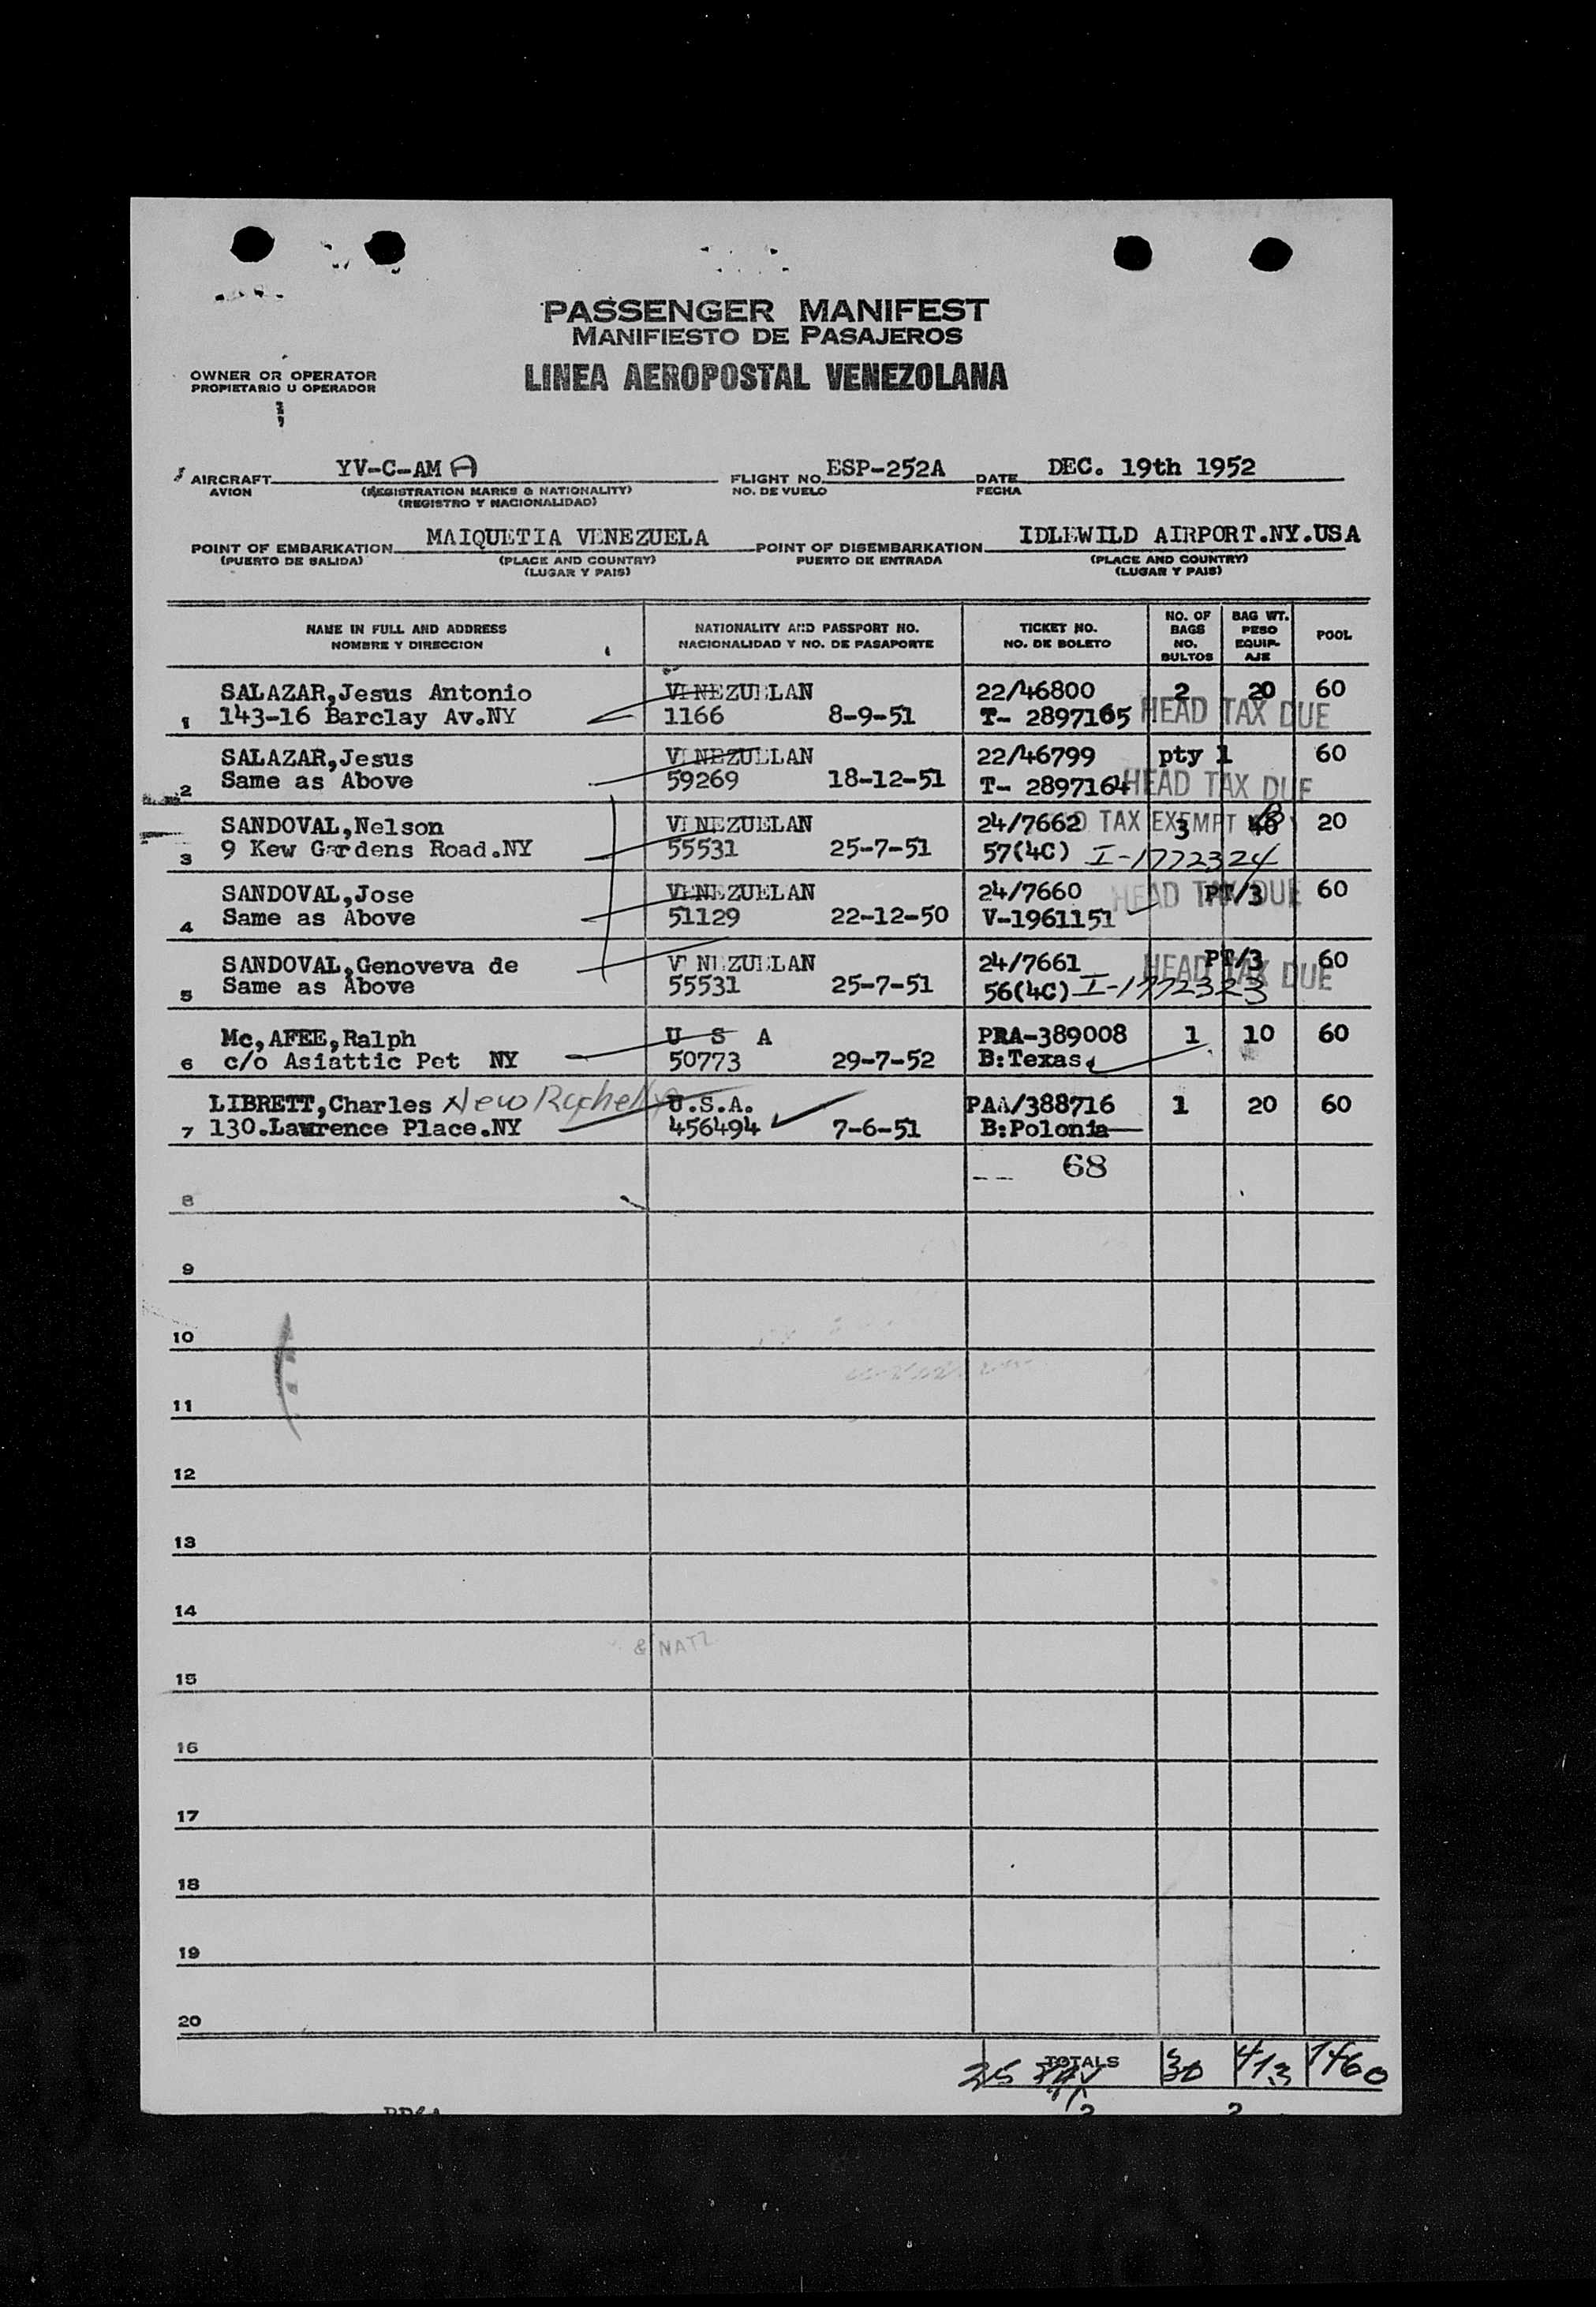 PASSENGER MANIFEST
MANIFIESTO DE PASAJEROS
OWNER OR OPERATOR
PROPIETARIO U OPERADOR
LINEA AEROPOSTAL VENEZOLANA
AIRCRAFT YV-C-AM A FLIGHT NO. ESP-252A DATE DEC. 19th 1952
AVION (REGISTRATION MARKS & NATIONALITY) NO. DE VUELO FECHA
(REGISTRO Y NACIONALIDAD)
POINT OF EMBARKATION MAIQUETIA VENEZUELA POINT OF DISEMBARKATION IDLEWILD AIRPORT.NY.USA
(PUERTO DE SALIDA) (PLACE AND COUNTRY) PUERTO DE ENTRADA (PLACE AND COUNTRY)
(LUGAR Y PAIS) (LUGAR Y PAIS)
NAME IN FULL AND ADDRESS NATIONALITY AND PASSPORT NO. TICKET NO. NO. OF BAGS BAG WT. POOL
NOMBRE Y DIRECCION NACIONALIDAD Y NO. DE PASAPORTE NO. DE BOLETO NO. BULTOS PESO EQUIP-AJE
SALAZAR,Jesus Antonio VENEZUELAN 22/46800 2 20 60
1 143-16 Barclay Av.NY 1166 8-9-51 T- 2897165 HEAD TAX DUE
SALAZAR,Jesus VENEZUELAN 22/46799 pty 1 60
2 Same as Above 59269 18-12-51 T- 2897164 HEAD TAX DUE
SANDOVAL,Nelson VENEZUELAN 24/7662 TAX EXEMPT 3 20
3 9 Kew Gardens Road.NY 55531 25-7-51 57(4C) I-1772324
SANDOVAL,Jose VENEZUELAN 24/7660 HEAD TAX DUE PT/3 60
4 Same as Above 51129 22-12-50 V-1961151
SANDOVAL,Genoveva de VENEZUELAN 24/7661 HEAD TAX DUE PT/3 60
5 Same as Above 55531 25-7-51 56(4C) I-1772323
Mc,AFEE,Ralph U S A PRA-389008 1 10 60
6 c/o Asiattic Pet NY 50773 29-7-52 B:Texas
LIBRETT,Charles New Rochelle U.S.A. PAA/388716 1 20 60
7 130.Lawrence Place.NY 456494 7-6-51 B:Polonia
68
8
9
10
11
12
13
14
& NATZ
15
16
17
18
19
20
25 TOTALS 30 413 1460